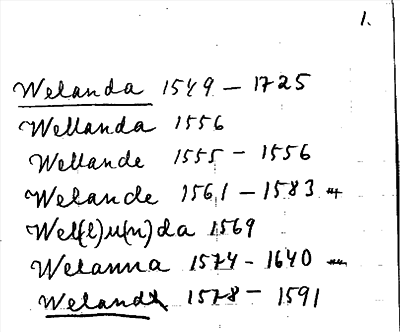 1.
Welanda 1549 – 1725
Wellanda 1556
Wellande 1555 – 1556
Welande 1561 – 1583
Wel(l)u(n)da 1569
Welanna 1574 – 1640
1578 – 1591